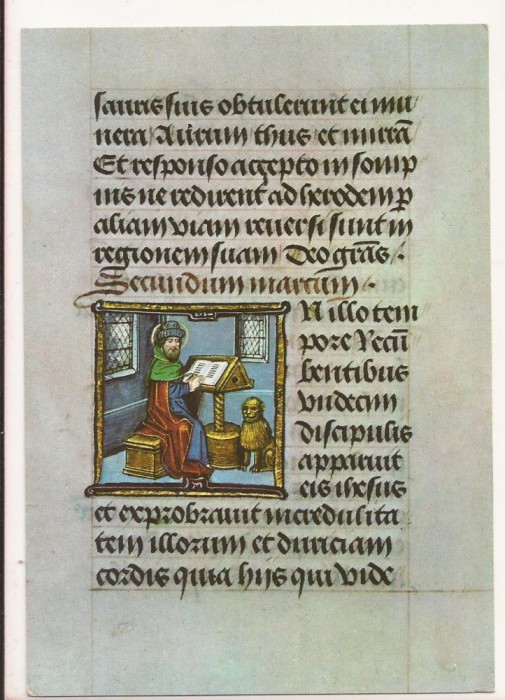 sauris suis obtulerunt ei mu
nera Aurum thus et mirrā
Et responso accepto in somp
nis ne redirent ad herodem p̲
aliam viam reuersi sunt in
regionem suam Deo grās
Secundum marcum
N illo tem
pore Recū
bentibus
vndecim
discipulis
apparuit
eis ihesus
et exprobrauit incredulita
tem illorum et duriciam
cordis quia hijs qui vide